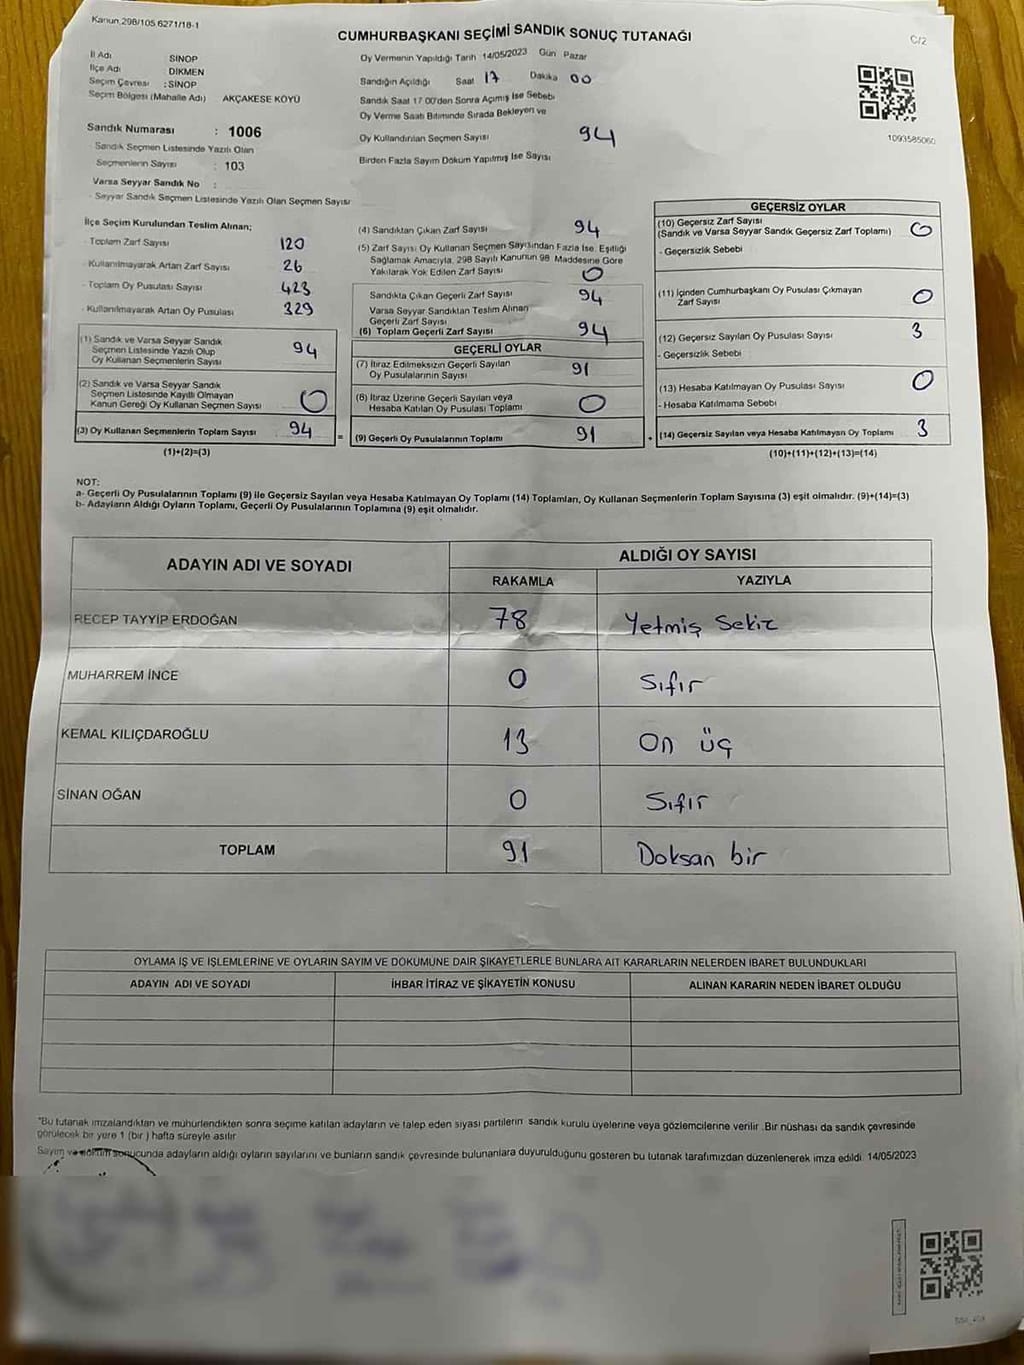 Kanun, 298/105 6271/18-1
CUMHURBAŞKANI SEÇİMİ SANDIK SONUÇ TUTANAĞI
C/2
İl Adı SİNOP
İlçe Adı DİKMEN
Seçim Çevresi :SİNOP
Seçim Bölgesi (Mahalle Adı) AKÇAKESE KÖYÜ
Sandık Numarası : 1006
- Sandık Seçmen Listesinde Yazılı Olan
Seçmenlerin Sayısı : 103
Varsa Seyyar Sandık No :
- Seyyar Sandık Seçmen Listesinde Yazılı Olan Seçmen Sayısı
Oy Vermenin Yapıldığı Tarih 14/05/2023 Gün Pazar
Sandığın Açıldığı Saat 17 Dakika 00
Sandık Saat 17 00'den Sonra Açımış İse Sebebi
Oy Verme Saati Bitiminde Sırada Bekleyen ve
Oy Kullandırılan Seçmen Sayısı 94
Birden Fazla Sayım Döküm Yapılmış İse Sayısı
1093585060
İlçe Seçim Kurulundan Teslim Alınan;
- Toplam Zarf Sayısı 120
- Kullanılmayarak Artan Zarf Sayısı 26
- Toplam Oy Pusulası Sayısı 423
- Kullanılmayarak Artan Oy Pusulası 329
(1) Sandık ve Varsa Seyyar Sandık
Seçmen Listesinde Yazılı Olup
Oy Kullanan Seçmenlerin Sayısı 94
(2) Sandık ve Varsa Seyyar Sandık
Seçmen Listesinde Kayıtlı Olmayan
Kanun Gereği Oy Kullanan Seçmen Sayısı 0
(3) Oy Kullanan Seçmenlerin Toplam Sayısı 94
(1)+(2)=(3)
(4) Sandıktan Çıkan Zarf Sayısı 94
(5) Zarf Sayısı Oy Kullanan Seçmen Sayısından Fazla İse, Eşitliği
Sağlamak Amacıyla, 298 Sayılı Kanunun 98 Maddesine Göre
Yakılarak Yok Edilen Zarf Sayısı 0
Sandıkta Çıkan Geçerli Zarf Sayısı 94
Varsa Seyyar Sandıktan Teslim Alınan
Geçerli Zarf Sayısı
(6) Toplam Geçerli Zarf Sayısı 94
GEÇERLİ OYLAR
(7) İtiraz Edilmeksizin Geçerli Sayılan
Oy Pusulalarının Sayısı 91
(8) İtiraz Üzerine Geçerli Sayılan veya
Hesaba Katılan Oy Pusulası Toplamı 0
= (9) Geçerli Oy Pusulalarının Toplamı 91 +
GEÇERSİZ OYLAR
(10) Geçersiz Zarf Sayısı
(Sandık ve Varsa Seyyar Sandık Geçersiz Zarf Toplamı) 0
- Geçersizlik Sebebi
(11) İçinden Cumhurbaşkanı Oy Pusulası Çıkmayan
Zarf Sayısı 0
(12) Geçersiz Sayılan Oy Pusulası Sayısı 3
- Geçersizlik Sebebi
(13) Hesaba Katılmayan Oy Pusulası Sayısı 0
- Hesaba Katılmama Sebebi
(14) Geçersiz Sayılan veya Hesaba Katılmayan Oy Toplamı 3
(10)+(11)+(12)+(13)=(14)
NOT:
a- Geçerli Oy Pusulalarının Toplamı (9) ile Geçersiz Sayılan veya Hesaba Katılmayan Oy Toplamı (14) Toplamları, Oy Kullanan Seçmenlerin Toplam Sayısına (3) eşit olmalıdır. (9)+(14)=(3)
b- Adayların Aldığı Oyların Toplamı, Geçerli Oy Pusulalarının Toplamına (9) eşit olmalıdır.
ADAYIN ADI VE SOYADI
ALDIĞI OY SAYISI
RAKAMLA YAZIYLA
RECEP TAYYİP ERDOĞAN 78 Yetmiş Sekiz
MUHARREM İNCE 0 Sıfır
KEMAL KILIÇDAROĞLU 13 On üç
SİNAN OĞAN 0 Sıfır
TOPLAM 91 Doksan bir
OYLAMA İŞ VE İŞLEMLERİNE VE OYLARIN SAYIM VE DÖKÜMÜNE DAİR ŞİKAYETLERLE BUNLARA AİT KARARLARIN NELERDEN İBARET BULUNDUKLARI
ADAYIN ADI VE SOYADI İHBAR İTİRAZ VE ŞİKAYETİN KONUSU ALINAN KARARIN NEDEN İBARET OLDUĞU
"Bu tutanak imzalandıktan ve mühürlendikten sonra seçime katılan adayların ve talep eden siyasi partilerin sandık kurulu üyelerine veya gözlemcilerine verilir .Bir nüshası da sandık çevresinde
görülecek bir yere 1 (bir ) hafta süreyle asılır
Sayım ve döküm sonucunda adayların aldığı oyların sayılarını ve bunların sandık çevresinde bulunanlara duyurulduğunu gösteren bu tutanak tarafımızdan düzenlenerek imza edildi. 14/05/2023